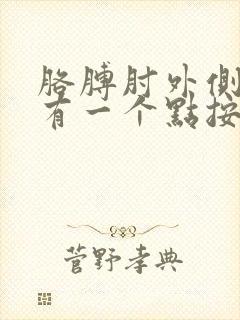 胳膊肘外側
有一个點按
菅野孝典